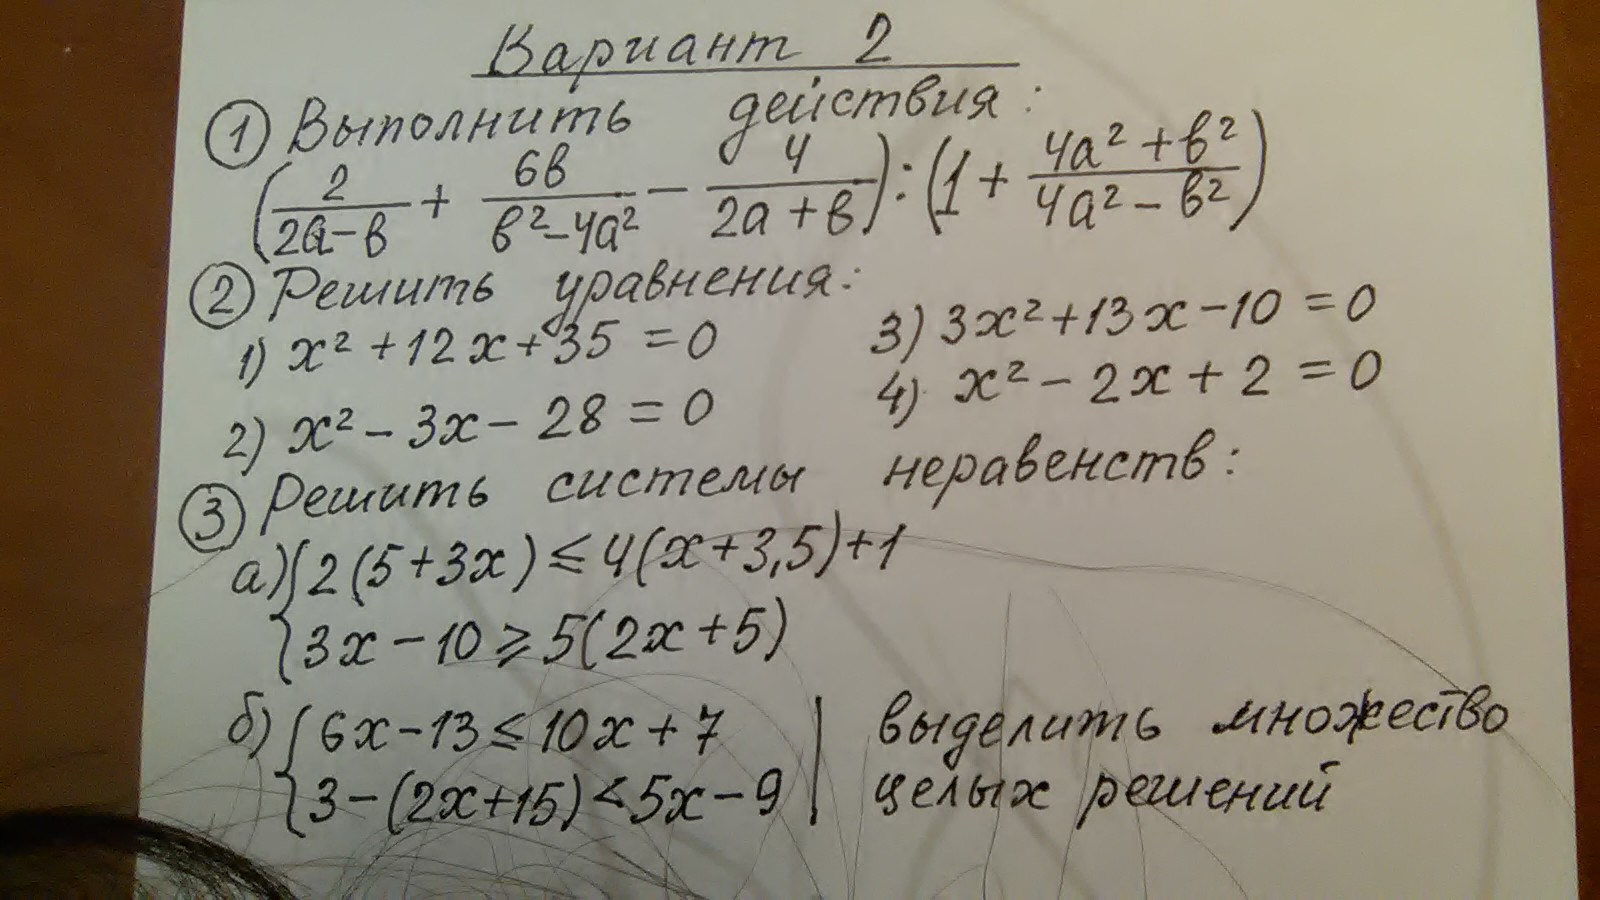 Вариант 2
① Выполнить действия:
(2/(2a-в) + 6в/(в²-4a²) - 4/(2a+в)) : (1 + (4a²+в²)/(4a²-в²))
② Решить уравнения:
1) x² + 12x + 35 = 0
2) x² - 3x - 28 = 0
3) 3x² + 13x - 10 = 0
4) x² - 2x + 2 = 0
③ Решить системы неравенств:
а) { 2(5+3x) ≤ 4(x+3,5)+1
3x - 10 ⩾ 5(2x+5)
б) { 6x - 13 ≤ 10x + 7
3 - (2x+15) < 5x - 9
выделить множество
целых решений